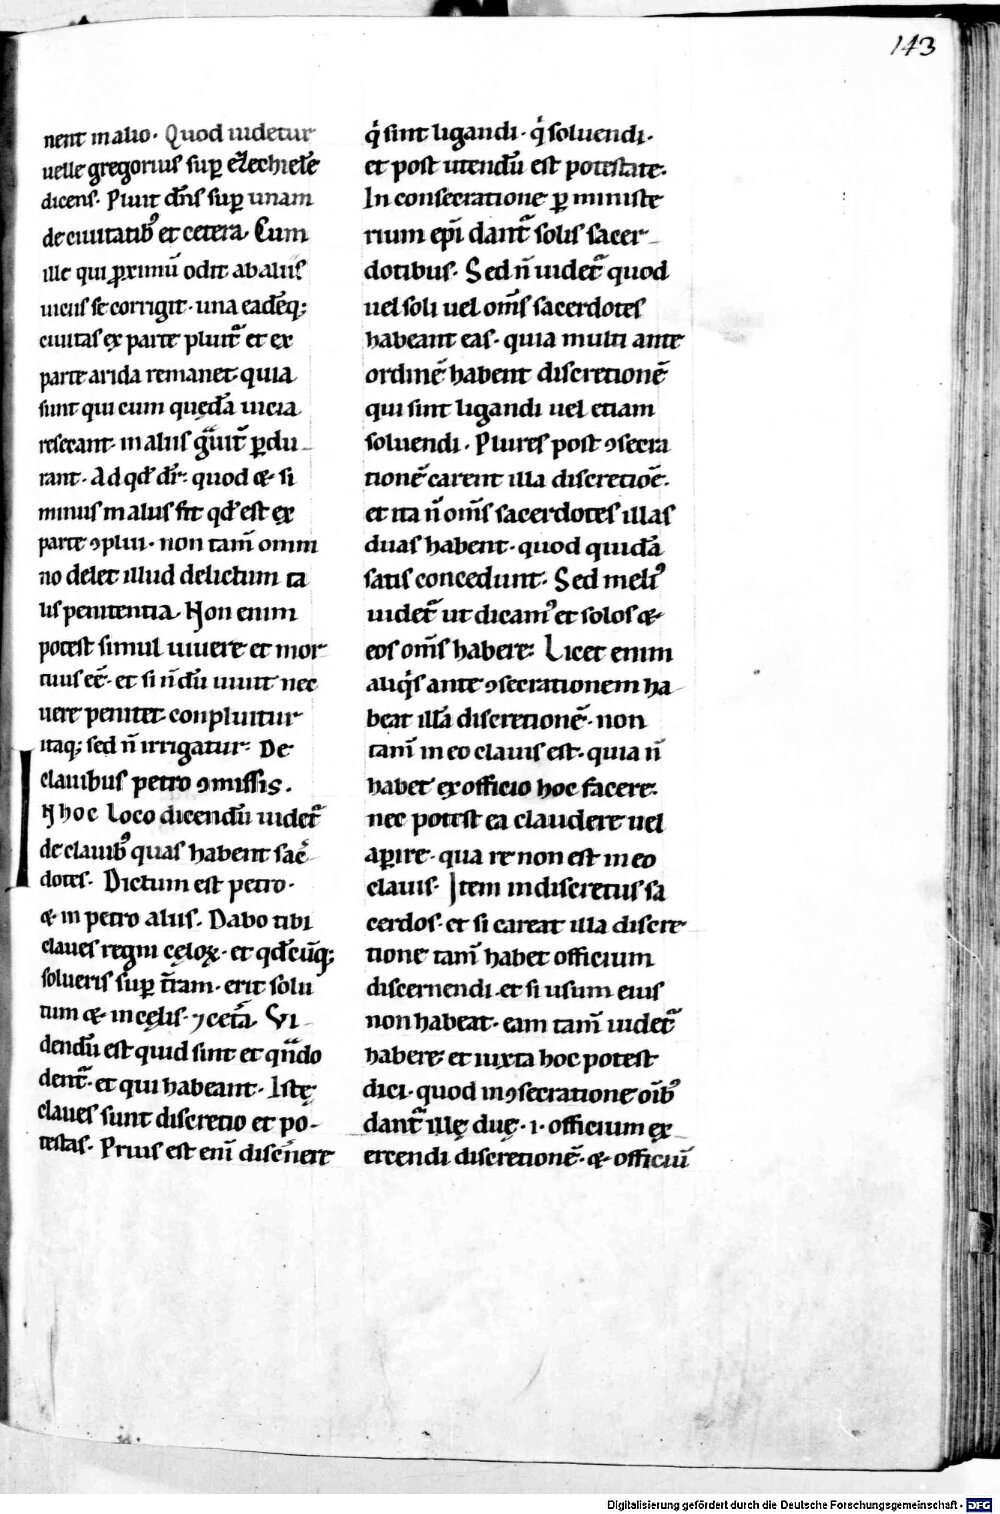 143
nent in alio. Quod uidetur
uelle gregorius sup̱ ezechielē
dicens. Pluit dn̄s sup̱ unam
de ciuitatibꝰ et cetera. Cum
ille qui ꝓximū odit ab aliis
uiciis se corrigit. una eadēq;
ciuitas ex parte pluitᷓ et ex
parte arida remanet. quia
sunt qui cum quędā uicia
resecant. in aliis gᷓuitᷓ ꝑdu-
rant. Ad qđ dr̄. quod & si
minus malus fit qđ est ex
parte ꝯplui. non tam̄ omni
no delet illud delictum ta
lis penitentia. Non enim
potest simul uiuere et mor
tuus eē. et si n̄dū uiuit nec
uere penitet. conpluitur
itaq; sed n̄ irrigatur. De
clauibus petro ꝯmissis.
IN hoc loco dicendū uidetᷓ
de clauibꝰ quas habent sac̄
dotes. Dictum est petro.
& in petro aliis. Dabo tibi
claues regni cęloꝝ. et qđcūq;
solueris sup̱ t̄ram. erit solu
tum & in cęlis. ⁊ cet̄a. Vi-
dendū est quid sint et qn̄do
dentᷓ. et qui habeant. Istę
claues sunt discretio et po-
testas. Prius est eni̅ disc̄nere
q̇ sint ligandi. q̇ soluendi.
et post utendū est potestate.
In consecratione ꝑ ministe
rium ep̄i dantᷓ solis sacer-
dotibus. Sed n̄ uidetᷓ quod
uel soli uel om̄s sacerdotes
habeant eas. quia multi ante
ordinē habent discretionē
qui sint ligandi uel etiam
soluendi. Plures post ꝯsecra
tionē carent illa discretiōe.
et ita n̄ om̄s sacerdotes illas
duas habent. quod quidā
satis concedunt. Sed meliꝰ
uidetᷓ ut dicamꝰ et solos &
eos om̄s habere. Licet enim
aliq̇s ante ꝯsecrationem ha
beat illā discretionē. non
tam̄ in eo clauis est. quia n̄
habet ex officio hoc facere.
nec potest ea claudere uel
aꝑire. qua re non est in eo
clauis. Item indiscretus sa
cerdos. et si careat illa discre
tione tam̄ habet officium
discernendi. et si usum eius
non habeat. eam tam̄ uidetᷓ
habere. et iuxta hoc potest
dici. quod in ꝯsecratione oībꝰ
dantᷓ illę duę. .i. officium ex-
ercendi discretionē. & officiū
Digitalisierung gefördert durch die Deutsche Forschungsgemeinschaft - DFG